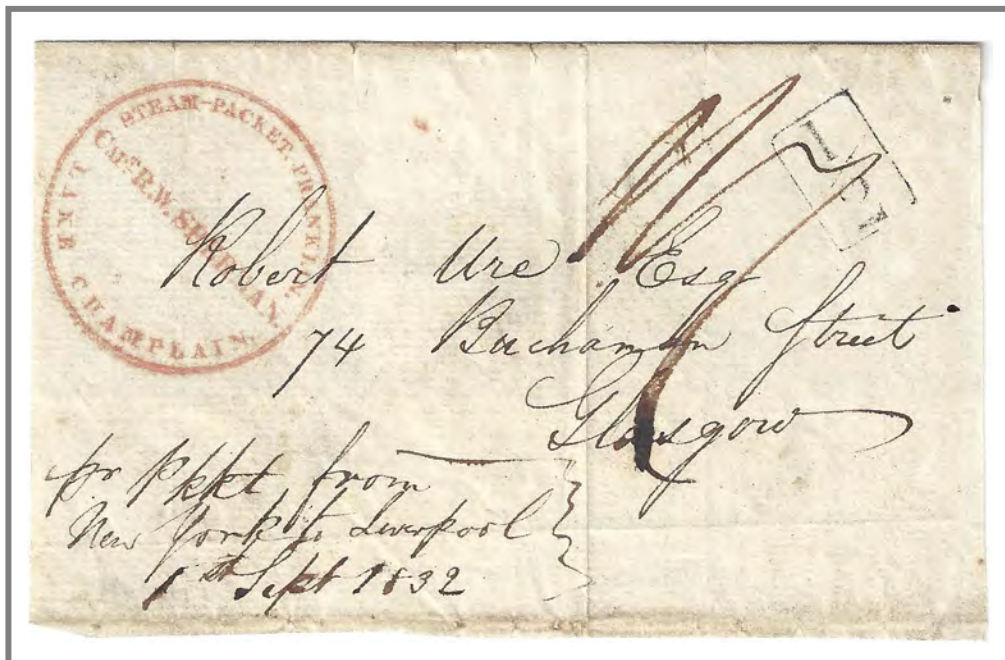 STEAM-PACKET. FRANKLIN.
CAPT. R.W. SHERMAN.
LAKE CHAMPLAIN.
Robert Ure Esq
74 Buchanan Street
Glasgow
pr pkkt from
New York to Liverpool
1st Sept 1832